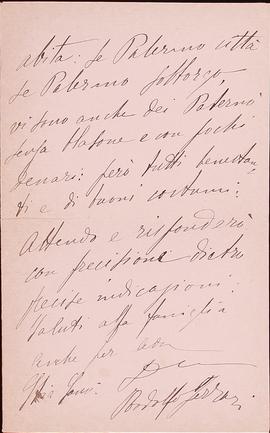 abita: se Palermo città
se Palermo sottorco,
vi sono anche dei Paternò
senza blasone e con pochi
denari: però tutti benestan-
ti e di buoni costumi:
Attendo e risponderò
con precisione dietro
precise indicazioni:
Saluti alla famiglia
anche per
Rodolfo